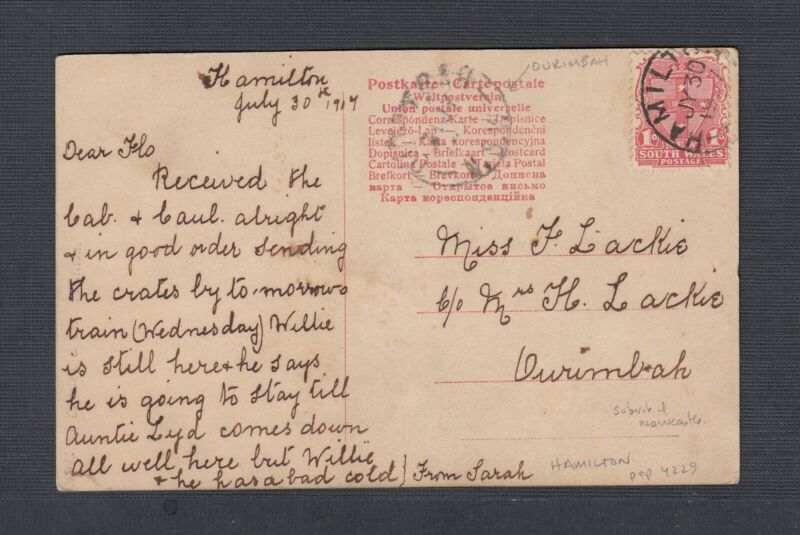 Hamilton
July 30th 1907
Dear Flo
Received the
Cab. & Caul. alright
& in good order sending
the crates by to-morrows
train (Wednesday) Willie
is still here & he says
he is going to stay till
Auntie Lyd comes down
all well here but Willie
& he has a bad cold) From Sarah
Postkarte - Carte postale
Weltpostverein
Union postale universelle
Correspondenz-Karte - Dopisnice
Levelező-Lap - Korespondenční
lístek - Karta korespondencyjna
Dopisnica - Briefkaart - Postcard
Cartolina Postale - Tarjeta Postal
Brefkort - Brevkort - Дописна
карта - Открытое письмо
Карта кореспонденційна
OURIMBAH
HAMILTON
JY 30
1D
SOUTH WALES
POSTAGE
Miss F. Lackie
C/o Mrs H. Lackie
Ourimbah
Suburb of
Newcastle.
HAMILTON
pop 4229